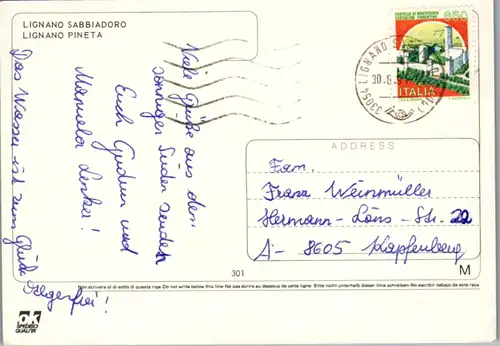 LIGNANO SABBIADORO
LIGNANO PINETA
Viele Grüße aus dem
sonnigen Süden senden
Euch Gudrun und
Manuela Lenker!
Das Wasser ist zum Glück
Algenfrei!
CASTELLO DI MONTECCHIO
CASTIGLION FIORENTINO
650
ITALIA
33054 LIGNANO S
30.8.
ADDRESS
Fam.
Franz Weinmüller
Hermann-Löns-Str. 22
A-8605 Kapfenberg
301
M
Non scrivere al di sotto di questa riga - Do not write below this line - Ne pas écrire au dessous de cette ligne - Bitte nicht unterhalb dieser linie schreiben - No escribir debajo de esta raya
SPEDISCI
QUALITÀ